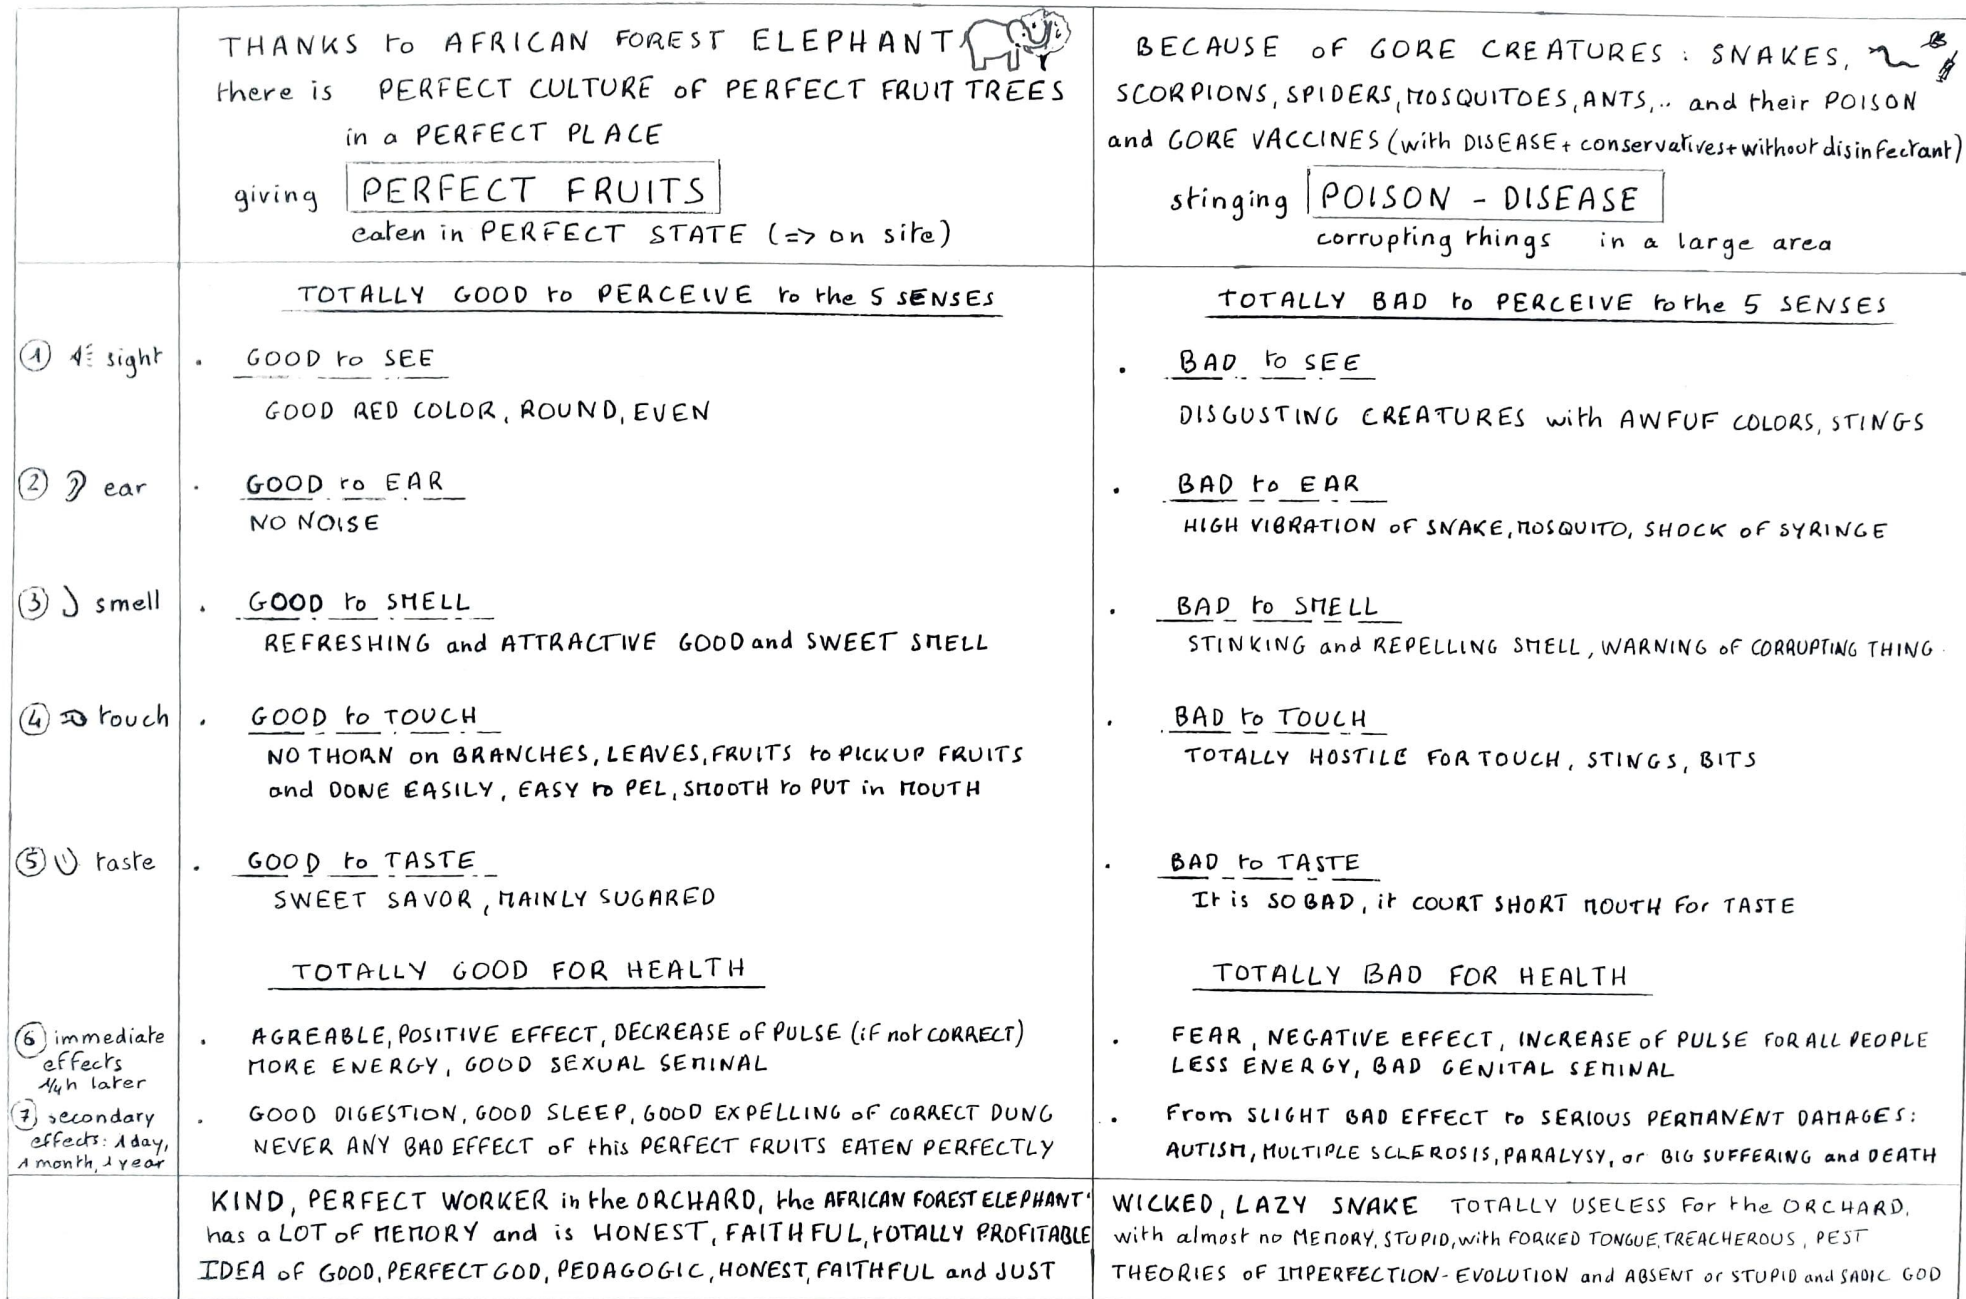 THANKS to AFRICAN FOREST ELEPHANT
there is PERFECT CULTURE of PERFECT FRUIT TREES
in a PERFECT PLACE
giving PERFECT FRUITS
eaten in PERFECT STATE (=> on site)
BECAUSE of GORE CREATURES : SNAKES,
SCORPIONS, SPIDERS, MOSQUITOES, ANTS,.. and their POISON
and GORE VACCINES (with DISEASE + conservatives + without disinfectant)
stinging POISON - DISEASE
corrupting things in a large area
TOTALLY GOOD to PERCEIVE to the 5 SENSES
TOTALLY BAD to PERCEIVE to the 5 SENSES
1 sight
. GOOD to SEE
GOOD RED COLOR, ROUND, EVEN
. BAD to SEE
DISGUSTING CREATURES with AWFUF COLORS, STINGS
2 ear
. GOOD to EAR
NO NOISE
. BAD to EAR
HIGH VIBRATION of SNAKE, MOSQUITO, SHOCK of SYRINGE
3 smell
. GOOD to SMELL
REFRESHING and ATTRACTIVE GOOD and SWEET SMELL
. BAD to SMELL
STINKING and REPELLING SMELL, WARNING of CORRUPTING THING.
4 touch
. GOOD to TOUCH
NO THORN on BRANCHES, LEAVES, FRUITS to PICKUP FRUITS
and DONE EASILY, EASY to PEL, SMOOTH to PUT in MOUTH
. BAD to TOUCH
TOTALLY HOSTILE FOR TOUCH, STINGS, BITS
5 taste
. GOOD to TASTE
SWEET SAVOR, MAINLY SUGARED
. BAD to TASTE
It is SO BAD, it COURT SHORT MOUTH FOR TASTE
TOTALLY GOOD FOR HEALTH
TOTALLY BAD FOR HEALTH
6 immediate
effects
1/4h later
. AGREABLE, POSITIVE EFFECT, DECREASE of PULSE (if not CORRECT)
MORE ENERGY, GOOD SEXUAL SEMINAL
. FEAR, NEGATIVE EFFECT, INCREASE of PULSE FOR ALL PEOPLE
LESS ENERGY, BAD GENITAL SEMINAL
7 secondary
effects: 1 day,
1 month, 1 year
. GOOD DIGESTION, GOOD SLEEP, GOOD EXPELLING of CORRECT DUNG
NEVER ANY BAD EFFECT of this PERFECT FRUITS EATEN PERFECTLY
. From SLIGHT BAD EFFECT to SERIOUS PERMANENT DAMAGES:
AUTISM, MULTIPLE SCLEROSIS, PARALYSY, or BIG SUFFERING and DEATH
KIND, PERFECT WORKER in the ORCHARD, the AFRICAN FOREST ELEPHANT
has a LOT OF MEMORY and is HONEST, FAITHFUL, TOTALLY PROFITABLE
IDEA of GOOD, PERFECT GOD, PEDAGOGIC, HONEST, FAITHFUL and JUST
WICKED, LAZY SNAKE TOTALLY USELESS For the ORCHARD,
with almost no MEMORY, STUPID, with FORKED TONGUE, TREACHEROUS, PEST
THEORIES of IMPERFECTION - EVOLUTION and ABSENT or STUPID and SADIC GOD